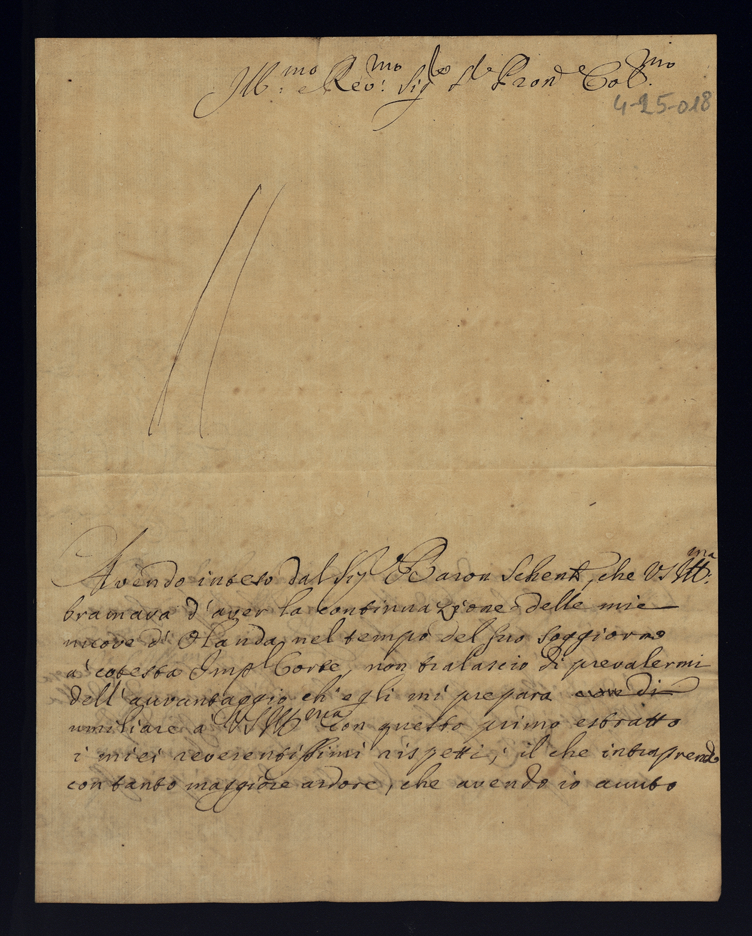 Ill:mo e Rev:mo Sig.re Sr Pron Col.mo
4-25-018
Avendo inteso dal Sigr Baron Schenk, che VS Ill:ma
bramava d'aver la continuazione delle mie
nuove d'Olanda, nel tempo del suo soggiorno
a' cotesta Imp.l Corte, non tralascio di prevalermi
dell'auvantaggio ch'egli mi prepara di
umiliare a VSIll:ma con questo primo estratto
i miei reverentissimi rispetti; il che intraprendo
con tanto maggiore ardore, che avendo io auuto